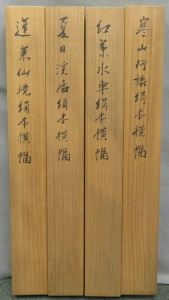 寒山行旅絹本横幅
紅葉水車絹本横幅
夏日渓居絹本横幅
蓬莱仙境絹本横幅